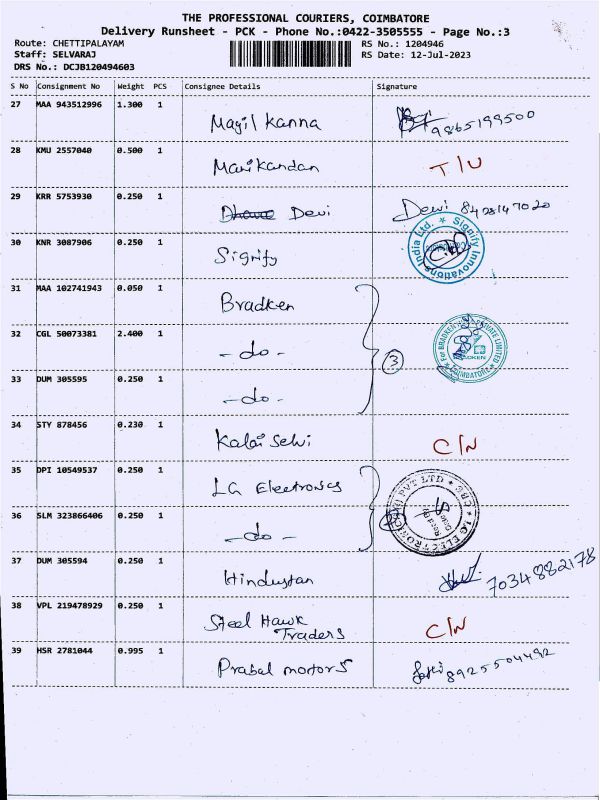 THE PROFESSIONAL COURIERS, COIMBATORE
Delivery Runsheet - PCK - Phone No.:0422-3505555 - Page No.:3
Route: CHETTIPALAYAM RS No.: 1204946
Staff: SELVARAJ RS Date: 12-Jul-2023
DRS No.: DCJB120494603
S No Consignment No Weight PCS Consignee Details Signature
27 MAA 943512996 1.300 1 Magil Kanna 9865199500
28 KMU 2557040 0.500 1 Manikandan T/U
29 KRR 5753930 0.250 1 Devi Devi 8428147020
30 KNR 3087906 0.250 1 Signify Signify Innovations India Ltd.
31 MAA 102741943 0.050 1 Bradken
32 CGL 50073381 2.400 1 - do - 3 For BRADKEN PRIVATE LIMITED COIMBATORE
33 DUM 305595 0.250 1 - do -
34 STY 878456 0.230 1 Kalai Selvi C/N
35 DPI 10549537 0.250 1 LG Electronics
36 SLM 323866406 0.250 1 - do - LG ELECTRONICS PVT LTD
37 DUM 305594 0.250 1 Hindustan 7034882178
38 VPL 219478929 0.250 1 Steel Hawk Traders C/N
39 HSR 2781044 0.995 1 Prabal motors 8925504492